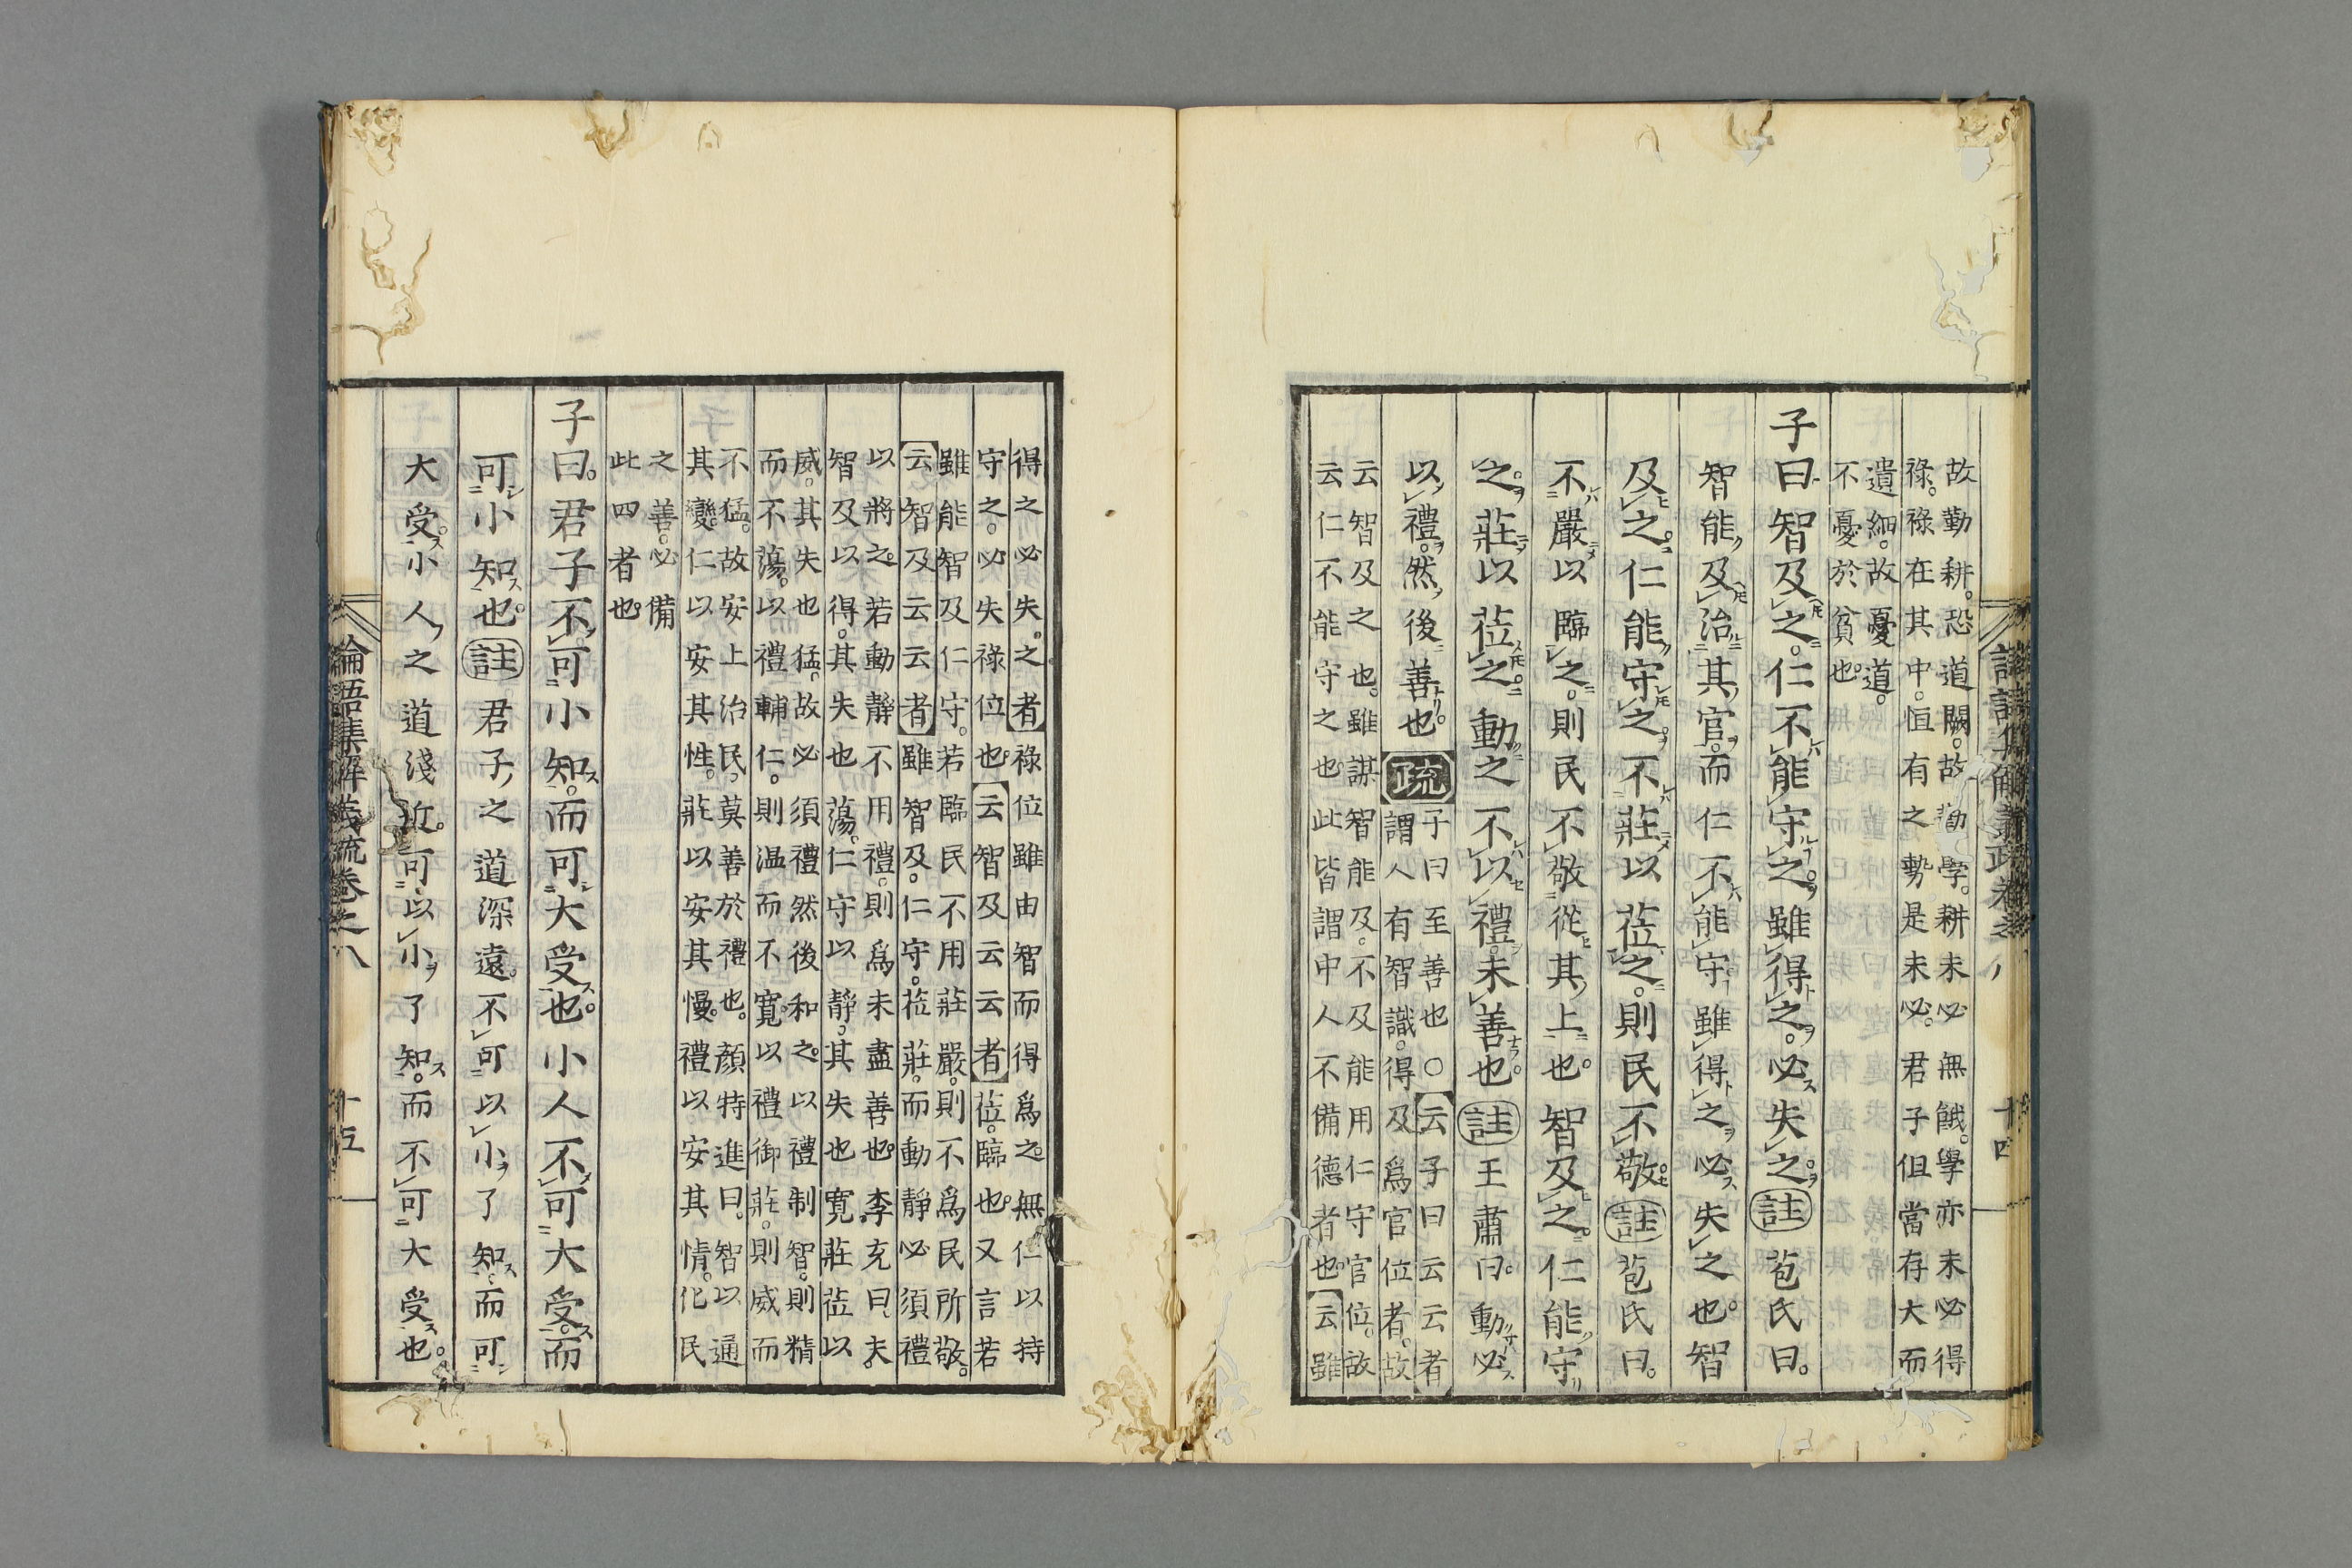 故勤耕。恐道闕。故勤學。耕未必無餓。學亦未必得
祿。祿在其中。恒有之勢是未必。君子但當存大而
遺細。故憂道。
不憂於貧也。
子曰智及之。仁不能守之。雖得之。必失之。註苞氏曰。
智能及治其官。而仁不能守雖得之必失之也。智
及之。仁能守之。不莊以莅之。則民不敬。註苞氏曰。
不嚴以臨之。則民不敬從其上也。智及之。仁能守
之。莊以莅之。動之不以禮。未善也。註王肅曰。動必
以禮。然後善也。疏
子曰至善也○云子曰云云者
謂人有智識。得及爲官位者。故
云智及之也。雖謀智能及。不及能用仁守官位。故
云仁不能守之也此皆謂中人不備德者也。云雖
論語集解義疏卷之八
十四
得之必失。之者祿位雖由智而得爲之。無仁以持
守之。必失祿位也。云智及云云者莅。臨也。又言若
雖能智及仁守。若臨民不用莊嚴。則不爲民所敬。
云智及云云者雖智及。仁守。莅莊。而動靜必須禮
以將之。若動靜不用禮。則爲未盡善也。李充曰、夫
智及以得。其失也蕩。仁守以靜。其失也寬。莊莅以
威。其失也猛。故必須禮然後和之。以禮制智。則精
而不蕩。以禮輔仁。則温而不寬。以禮御莊。則威而
不猛。故安上治民。莫善於禮也。顏特進曰。智以通
其變。仁以安其性。莊以安其慢。禮以安其情。化民
之善。必備
此四者也
子曰。君子不可小知。而可大受也。小人不可大受。而
可小知也。註君子之道深遠。不可以小了知。而可
大受。小人之道淺近。可以小了知。而不可大受也。
論語集解義疏卷之八
十五